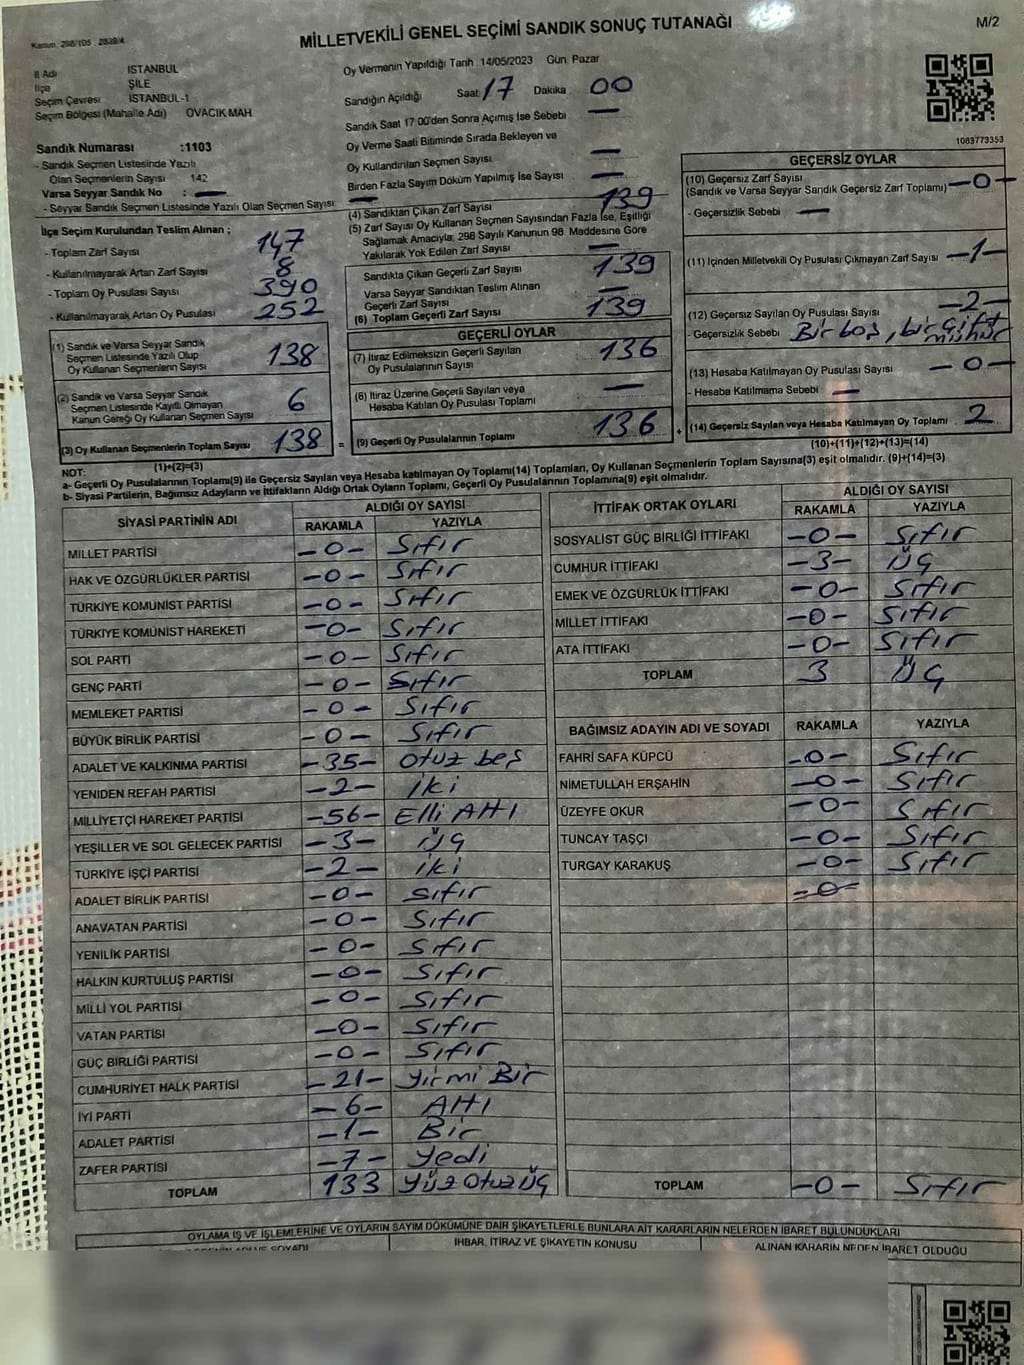 Kanun: 298/105 2839/4
MİLLETVEKİLİ GENEL SEÇİMİ SANDIK SONUÇ TUTANAĞI
M/2
İl Adı İSTANBUL
İlçe ŞİLE
Seçim Çevresi İSTANBUL-1
Seçim Bölgesi (Mahalle Adı) OVACIK MAH.
Oy Vermenin Yapıldığı Tarih 14/05/2023 Gün Pazar
Sandığın Açıldığı Saat 17 Dakika 00
Sandık Saat 17 00'den Sonra Açımış İse Sebebi —
Oy Verme Saati Bitiminde Sırada Bekleyen ve
Oy Kullandırılan Seçmen Sayısı —
Birden Fazla Sayım Döküm Yapılmış İse Sayısı —
1083773353
Sandık Numarası :1103
- Sandık Seçmen Listesinde Yazılı
Olan Seçmenlerin Sayısı 142
Varsa Seyyar Sandık No : —
- Seyyar Sandık Seçmen Listesinde Yazılı Olan Seçmen Sayısı —
İlçe Seçim Kurulundan Teslim Alınan ;
- Toplam Zarf Sayısı 147
- Kullanılmayarak Artan Zarf Sayısı 8
- Toplam Oy Pusulası Sayısı 390
- Kullanılmayarak Artan Oy Pusulası 252
(1) Sandık ve Varsa Seyyar Sandık
Seçmen Listesinde Yazılı Olup
Oy Kullanan Seçmenlerin Sayısı 138
(2) Sandık ve Varsa Seyyar Sandık
Seçmen Listesinde Kayıtlı Olmayan
Kanun Gereği Oy Kullanan Seçmen Sayısı 6
(3) Oy Kullanan Seçmenlerin Toplam Sayısı 138
(1)+(2)=(3)
(4) Sandıktan Çıkan Zarf Sayısı 139
(5) Zarf Sayısı Oy Kullanan Seçmen Sayısından Fazla İse, Eşitliği
Sağlamak Amacıyla; 298 Sayılı Kanunun 98. Maddesine Göre
Yakılarak Yok Edilen Zarf Sayısı —
Sandıkta Çıkan Geçerli Zarf Sayısı 139
Varsa Seyyar Sandıktan Teslim Alınan
Geçerli Zarf Sayısı —
(6) Toplam Geçerli Zarf Sayısı 139
GEÇERLİ OYLAR
(7) İtiraz Edilmeksizin Geçerli Sayılan
Oy Pusulalarının Sayısı 136
(8) İtiraz Üzerine Geçerli Sayılan veya
Hesaba Katılan Oy Pusulası Toplamı —
= (9) Geçerli Oy Pusulalarının Toplamı 136 +
GEÇERSİZ OYLAR
(10) Geçersiz Zarf Sayısı
(Sandık ve Varsa Seyyar Sandık Geçersiz Zarf Toplamı) —0—
- Geçersizlik Sebebi —
(11) İçinden Milletvekili Oy Pusulası Çıkmayan Zarf Sayısı —1—
(12) Geçersiz Sayılan Oy Pusulası Sayısı —2—
- Geçersizlik Sebebi Bir boş, bir çift mühür
(13) Hesaba Katılmayan Oy Pusulası Sayısı —0—
- Hesaba Katılmama Sebebi —
(14) Geçersiz Sayılan veya Hesaba Katılmayan Oy Toplamı 2
(10)+(11)+(12)+(13)=(14)
NOT:
a- Geçerli Oy Pusulalarının Toplamı(9) ile Geçersiz Sayılan veya Hesaba katılmayan Oy Toplamı(14) Toplamları, Oy Kullanan Seçmenlerin Toplam Sayısına(3) eşit olmalıdır. (9)+(14)=(3)
b- Siyasi Partilerin, Bağımsız Adayların ve İttifakların Aldığı Ortak Oyların Toplamı, Geçerli Oy Pusulalarının Toplamına(9) eşit olmalıdır.
SİYASİ PARTİNİN ADI ALDIĞI OY SAYISI
RAKAMLA YAZIYLA
MİLLET PARTİSİ —0— Sıfır
HAK VE ÖZGÜRLÜKLER PARTİSİ —0— Sıfır
TÜRKİYE KOMUNİST PARTİSİ —0— Sıfır
TÜRKİYE KOMÜNİST HAREKETİ —0— Sıfır
SOL PARTİ —0— Sıfır
GENÇ PARTİ —0— Sıfır
MEMLEKET PARTİSİ —0— Sıfır
BÜYÜK BİRLİK PARTİSİ —0— Sıfır
ADALET VE KALKINMA PARTİSİ —35— Otuz beş
YENİDEN REFAH PARTİSİ —2— İki
MİLLİYETÇİ HAREKET PARTİSİ —56— Elli Altı
YEŞİLLER VE SOL GELECEK PARTİSİ —3— Üç
TÜRKİYE İŞÇİ PARTİSİ —2— İki
ADALET BİRLİK PARTİSİ —0— Sıfır
ANAVATAN PARTİSİ —0— Sıfır
YENİLİK PARTİSİ —0— Sıfır
HALKIN KURTULUŞ PARTİSİ —0— Sıfır
MİLLİ YOL PARTİSİ —0— Sıfır
VATAN PARTİSİ —0— Sıfır
GÜÇ BİRLİĞİ PARTİSİ —0— Sıfır
CUMHURİYET HALK PARTİSİ —21— Yirmi Bir
İYİ PARTİ —6— Altı
ADALET PARTİSİ —1— Bir
ZAFER PARTİSİ —7— Yedi
TOPLAM 133 Yüz Otuz Üç
İTTİFAK ORTAK OYLARI ALDIĞI OY SAYISI
RAKAMLA YAZIYLA
SOSYALİST GÜÇ BİRLİĞİ İTTİFAKI —0— Sıfır
CUMHUR İTTİFAKI —3— Üç
EMEK VE ÖZGÜRLÜK İTTİFAKI —0— Sıfır
MİLLET İTTİFAKI —0— Sıfır
ATA İTTİFAKI —0— Sıfır
TOPLAM 3 Üç
BAĞIMSIZ ADAYIN ADI VE SOYADI RAKAMLA YAZIYLA
FAHRİ SAFA KÜPCÜ —0— Sıfır
NİMETULLAH ERŞAHİN —0— Sıfır
ÜZEYFE OKUR —0— Sıfır
TUNCAY TAŞÇI —0— Sıfır
TURGAY KARAKUŞ —0— Sıfır
—0—
TOPLAM —0— Sıfır
OYLAMA İŞ VE İŞLEMLERİNE VE OYLARIN SAYIM DÖKÜMÜNE DAİR ŞİKAYETLERLE BUNLARA AİT KARARLARIN NELERDEN İBARET BULUNDUKLARI
İHBAR, İTİRAZ VE ŞİKAYETİN KONUSU
ALINAN KARARIN NEDEN İBARET OLDUĞU